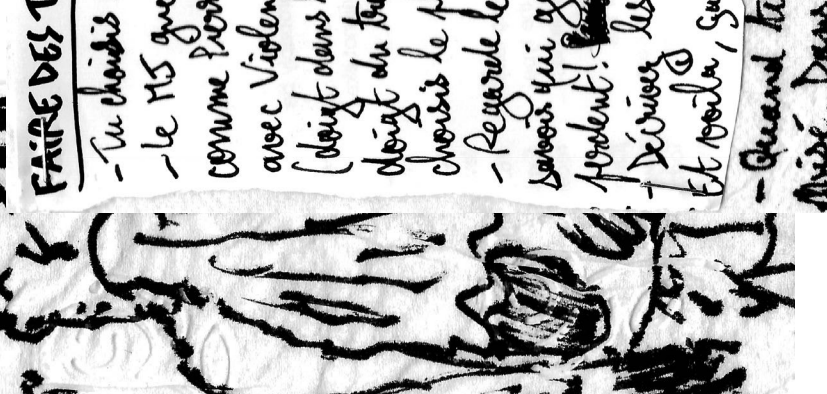 FAIRE DES T
- Tu choisis
- le MJ que
comme pierr
avec violen
(doigt dans
doigt du tr
choisis le p
- Regarde le
savoir qui g
perdent!
- Décrivez les
Et voilà, gu
- Quand tu
mise Dans